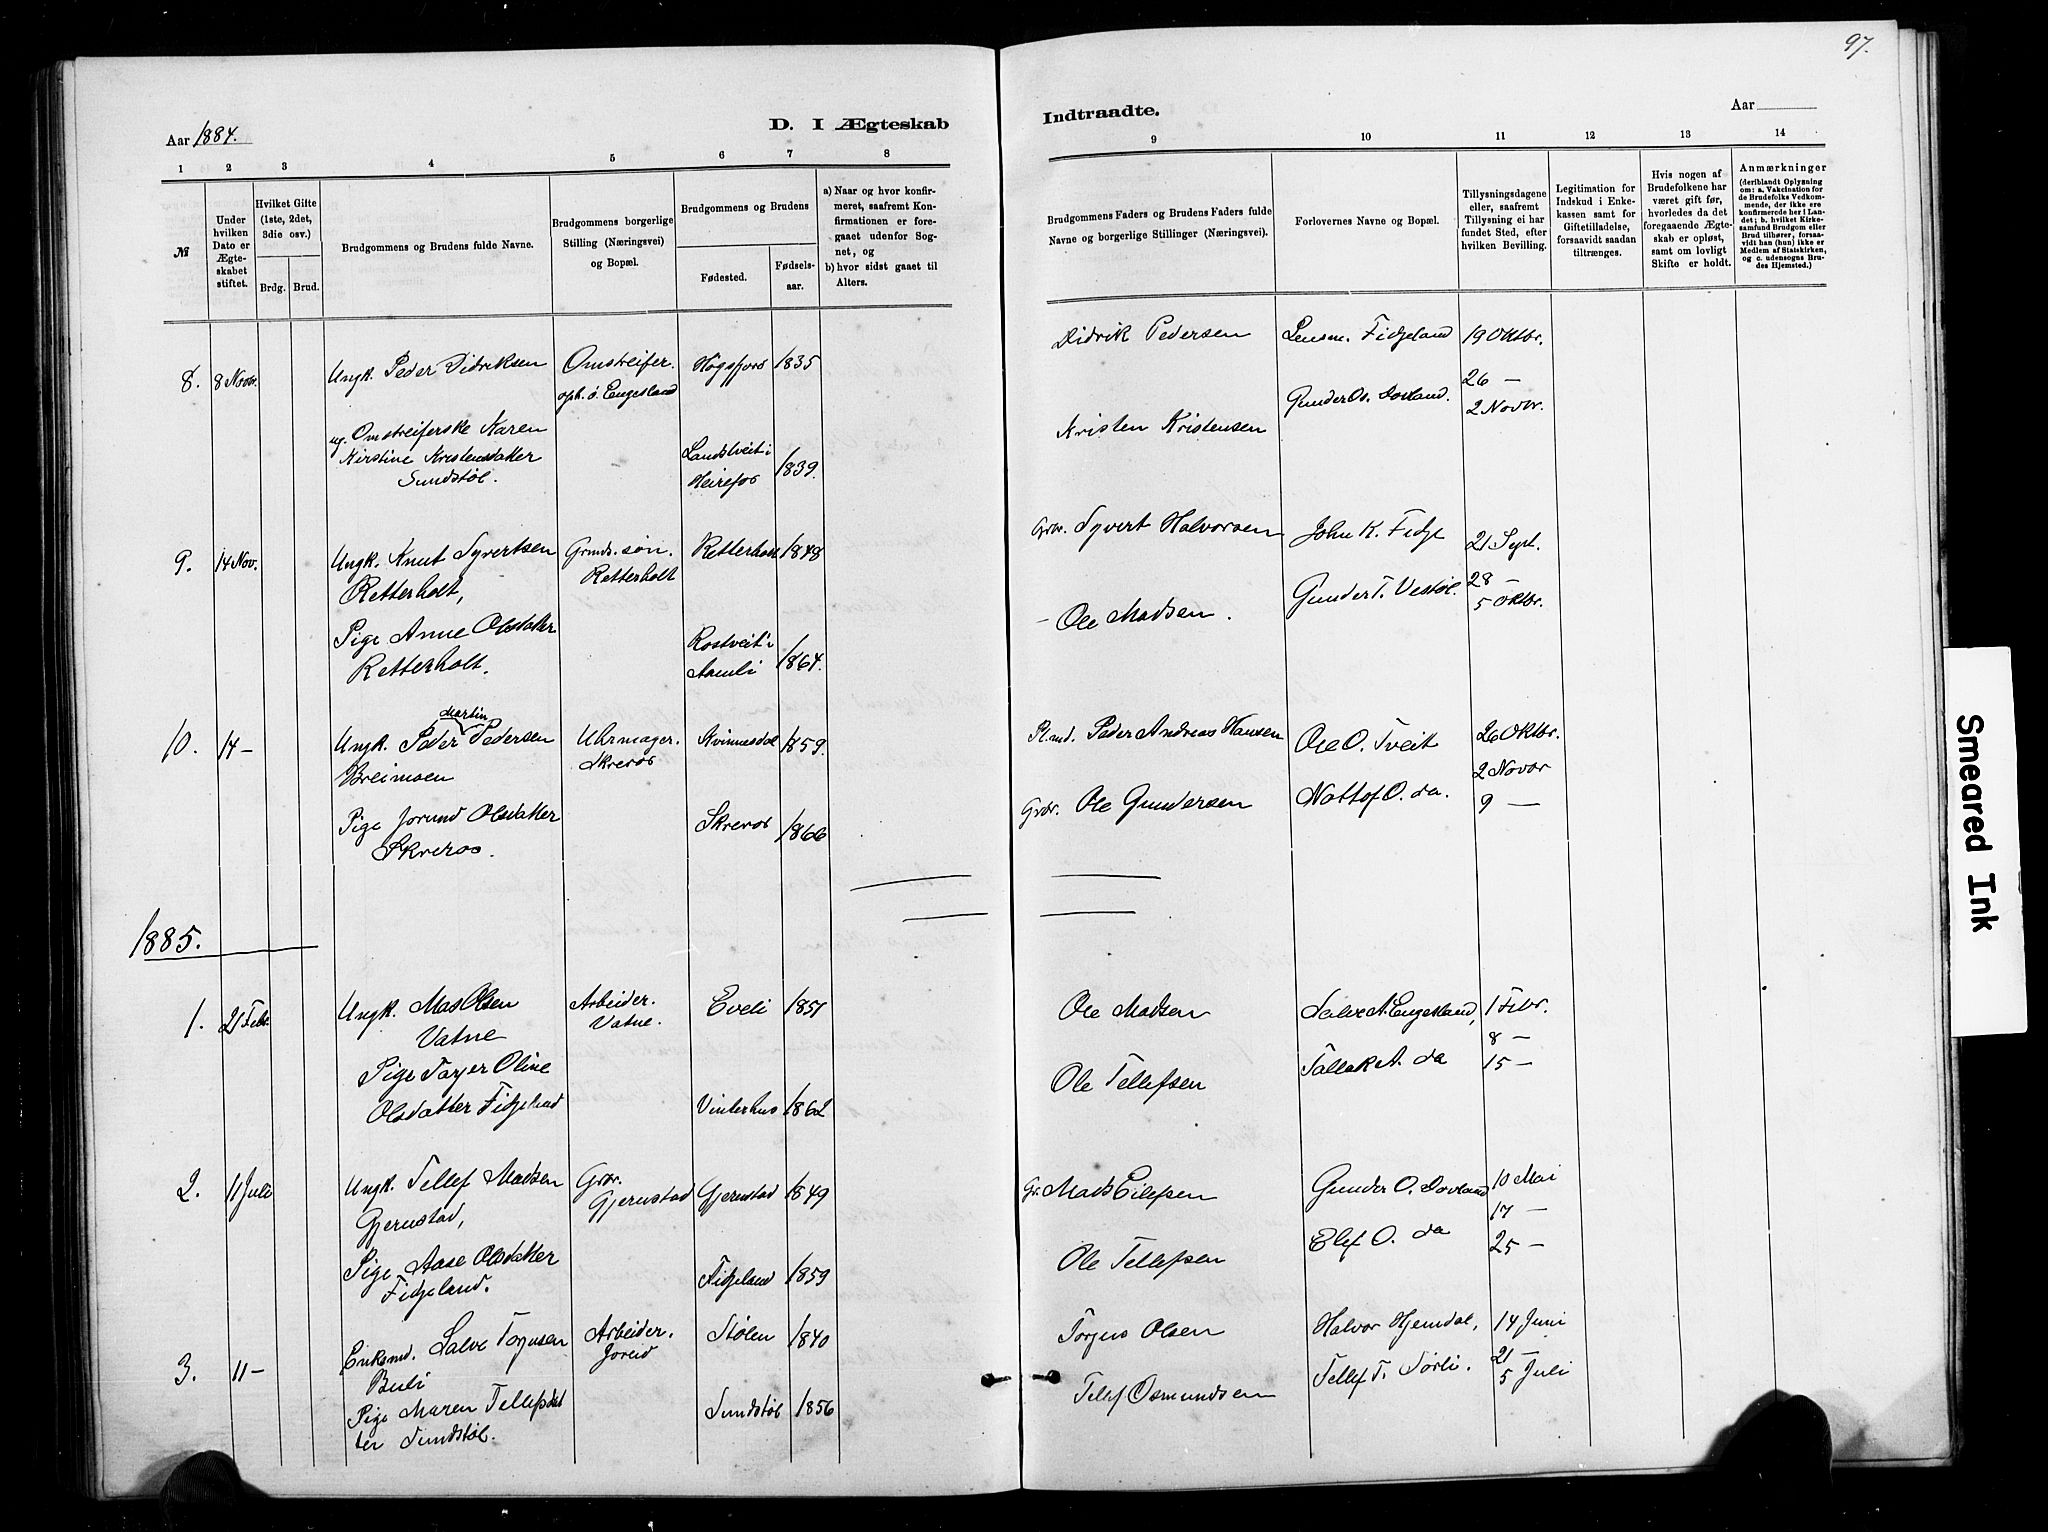 97.
Aar 1884.
D. I Ægteskab
Indtraadte.
Aar
1 2 3 4 5 6 7 8
9 10 11 12 13 14
№
Under hvilken Dato er Ægteskabet stiftet.
Hvilket Gifte (1ste, 2det, 3die osv.)
Brdg. Brud.
Brudgommens og Brudens fulde Navne.
Brudgommens borgerlige Stilling (Næringsvei) og Bopæl.
Brudgommens og Brudens
Fødested.
Fødselsaar.
a) Naar og hvor konfirmeret, saafremt Konfirmationen er foregaaet udenfor Sognet, og
b) hvor sidst gaaet til Alters.
Brudgommens Faders og Brudens Faders fulde Navne og borgerlige Stillinger (Næringsvei).
Forlovernes Navne og Bopæl.
Tillysningsdagene eller, saafremt Tillysning ei har fundet Sted, efter hvilken Bevilling.
Legitimation for Indskud i Enkekassen samt for Giftetilladelse, forsaavidt saadan tiltrænges.
Hvis nogen af Brudefolkene har været gift før, hvorledes da det foregaaende Ægteskab er opløst, samt om lovligt Skifte er holdt.
Anmærkninger
(deriblandt Oplysning om: a. Vakcination for de Brudefolks Vedkommende, der ikke ere konfirmerede her i Landet; b. hvilket Kirkesamfund Brudgom eller Brud tilhører, forsaavidt han (hun) ikke er Medlem af Statskirken, og c. udensogns Brudes Hjemsted.)
8. 8 Novbr. Ungk. Peder Didriksen Omstreifer. Høgsfjord 1835
oph. i. Engesland
ug. Omstreiferske Karen
Kirstine Kristensdatter
Sundstøl.
Landstveit i
Heirefos 1839.
Didrik Pedersen Lensm. Fidjeland 19 Oktbr.
Kristen Kristensen Gunder Os. Dovland. 26 —
2 Novbr.
9. 14 Nov. Ungk. Knut Syvertsen Grmds. søn. Retterholt 1848
Retterholt, Retterholt
Pige Anne Olsdatter Rostveit i
Retterholt. Aamli 1864.
Grbr. Syvert Halvorsen John K. Fidje 21 Sept.
- Ole Madsen. Gunder T. Vestøl. 28 —
5 Oktbr.
10. 14 — Ungk. Peder Martin Pedersen Uhrmager. Kvinnesdal 1859.
Breimoen Skreros
Pige Jorund Olsdatter Skreros 1866
Skreros.
Pl.md. Peder Andreas Hansen Ole O. Tveit 26 Oktbr.
2 Novbr
Grbr. Ole Gundersen Nottof O. da. 9 —
1885.
1. 21 Febr. Ungk. Mas Olsen Arbeider. Eveli 1851
Vatne Vatne.
Pige Torjer Oline
Olsdatter Fidjeland Vinterhus 1862
Ole Madsen Salve A. Engesland, 1 Febr.
8 —
Ole Tellefsen Tallak A. da 15 —
2. 11 Juli Ungk. Tellef Madsen Grbr. Gjerustad 1849
Gjerustad, Gjerustad
Pige Aase Olsdatter
Fidjeland. Fidjeland 1859
Gr. Mads Eilefsen Gunder O. Dovland 10 Mai
17 —
Ole Tellefsen Elef O. da 25 —
3. 11 — Enkemd. Salve Torjusen Arbeider. Stølen 1840
Buli Joreid
Pige Maren Tellefsdat
ter Sundstøl. Sundstøl 1856
Torjus Olsen Halvor Hjemdal, 14 Juni
21 —
Tellef Osmundsen Tellef T. Torli. 5 Juli
Smeared Ink